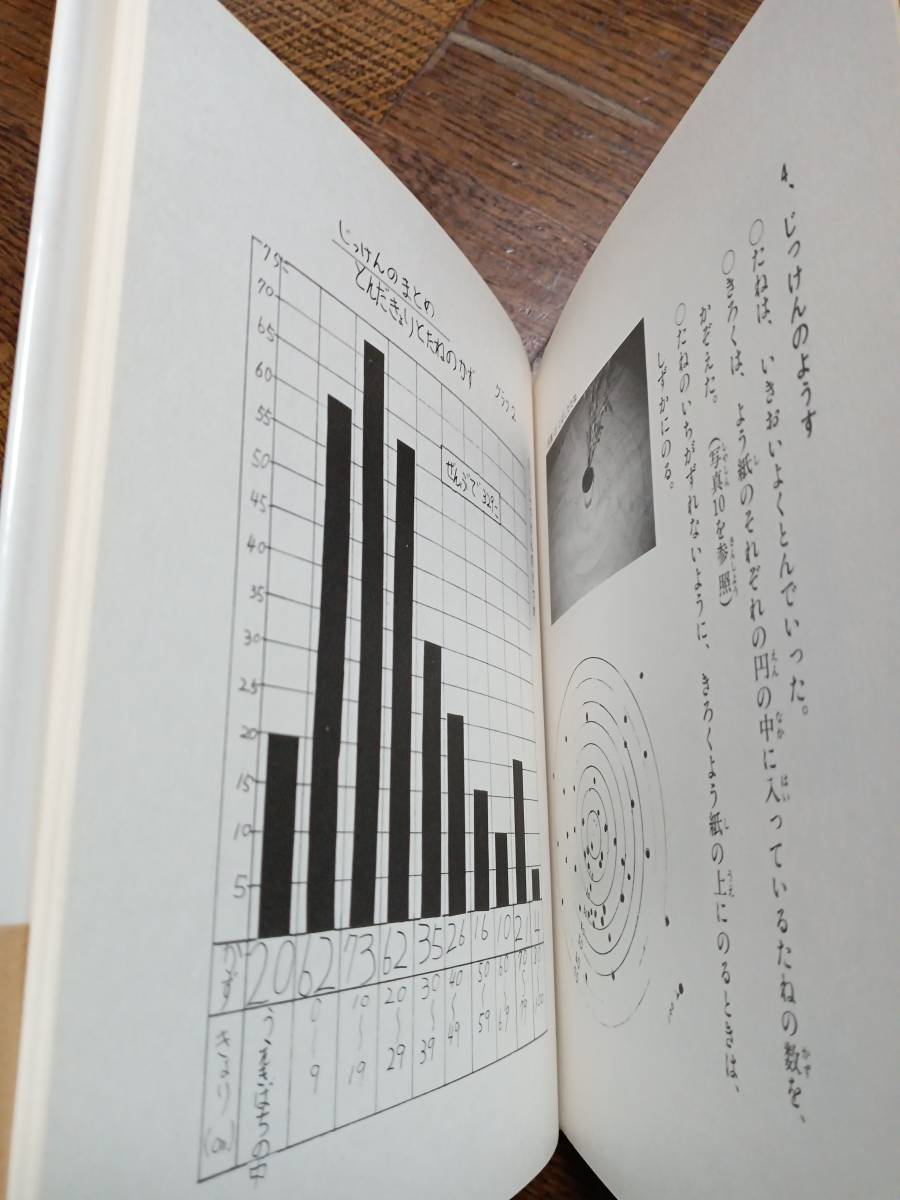 4、じっけんのようす
○たねは、いきおいよくとんでいった。
○きろくは、よう紙のそれぞれの円の中に入っているたねの数を、
かぞえた。(写真10を参照)
○たねのいちがずれないように、きろくよう紙の上にのるときは、
しずかにのる。
じっけんのまとめ
とんだきょりとたねのかず グラフ2
ぜんぶで329こ
75
70
65
60
55
50
45
40
35
30
25
20
15
10
5
20 62 73 62 35 26 16 10 21 4
0〜9 10〜19 20〜29 30〜39 40〜49 50〜59 60〜69